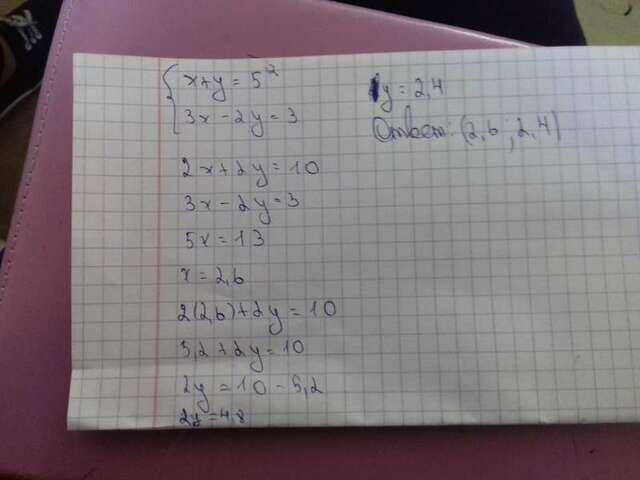 { x + y = 5 2
3x - 2y = 3
2x + 2y = 10
3x - 2y = 3
5x = 13
x = 2,6
2(2,6) + 2y = 10
5,2 + 2y = 10
2y = 10 - 5,2
2y = 4,8
y = 2,4
Ответ: (2,6; 2,4)